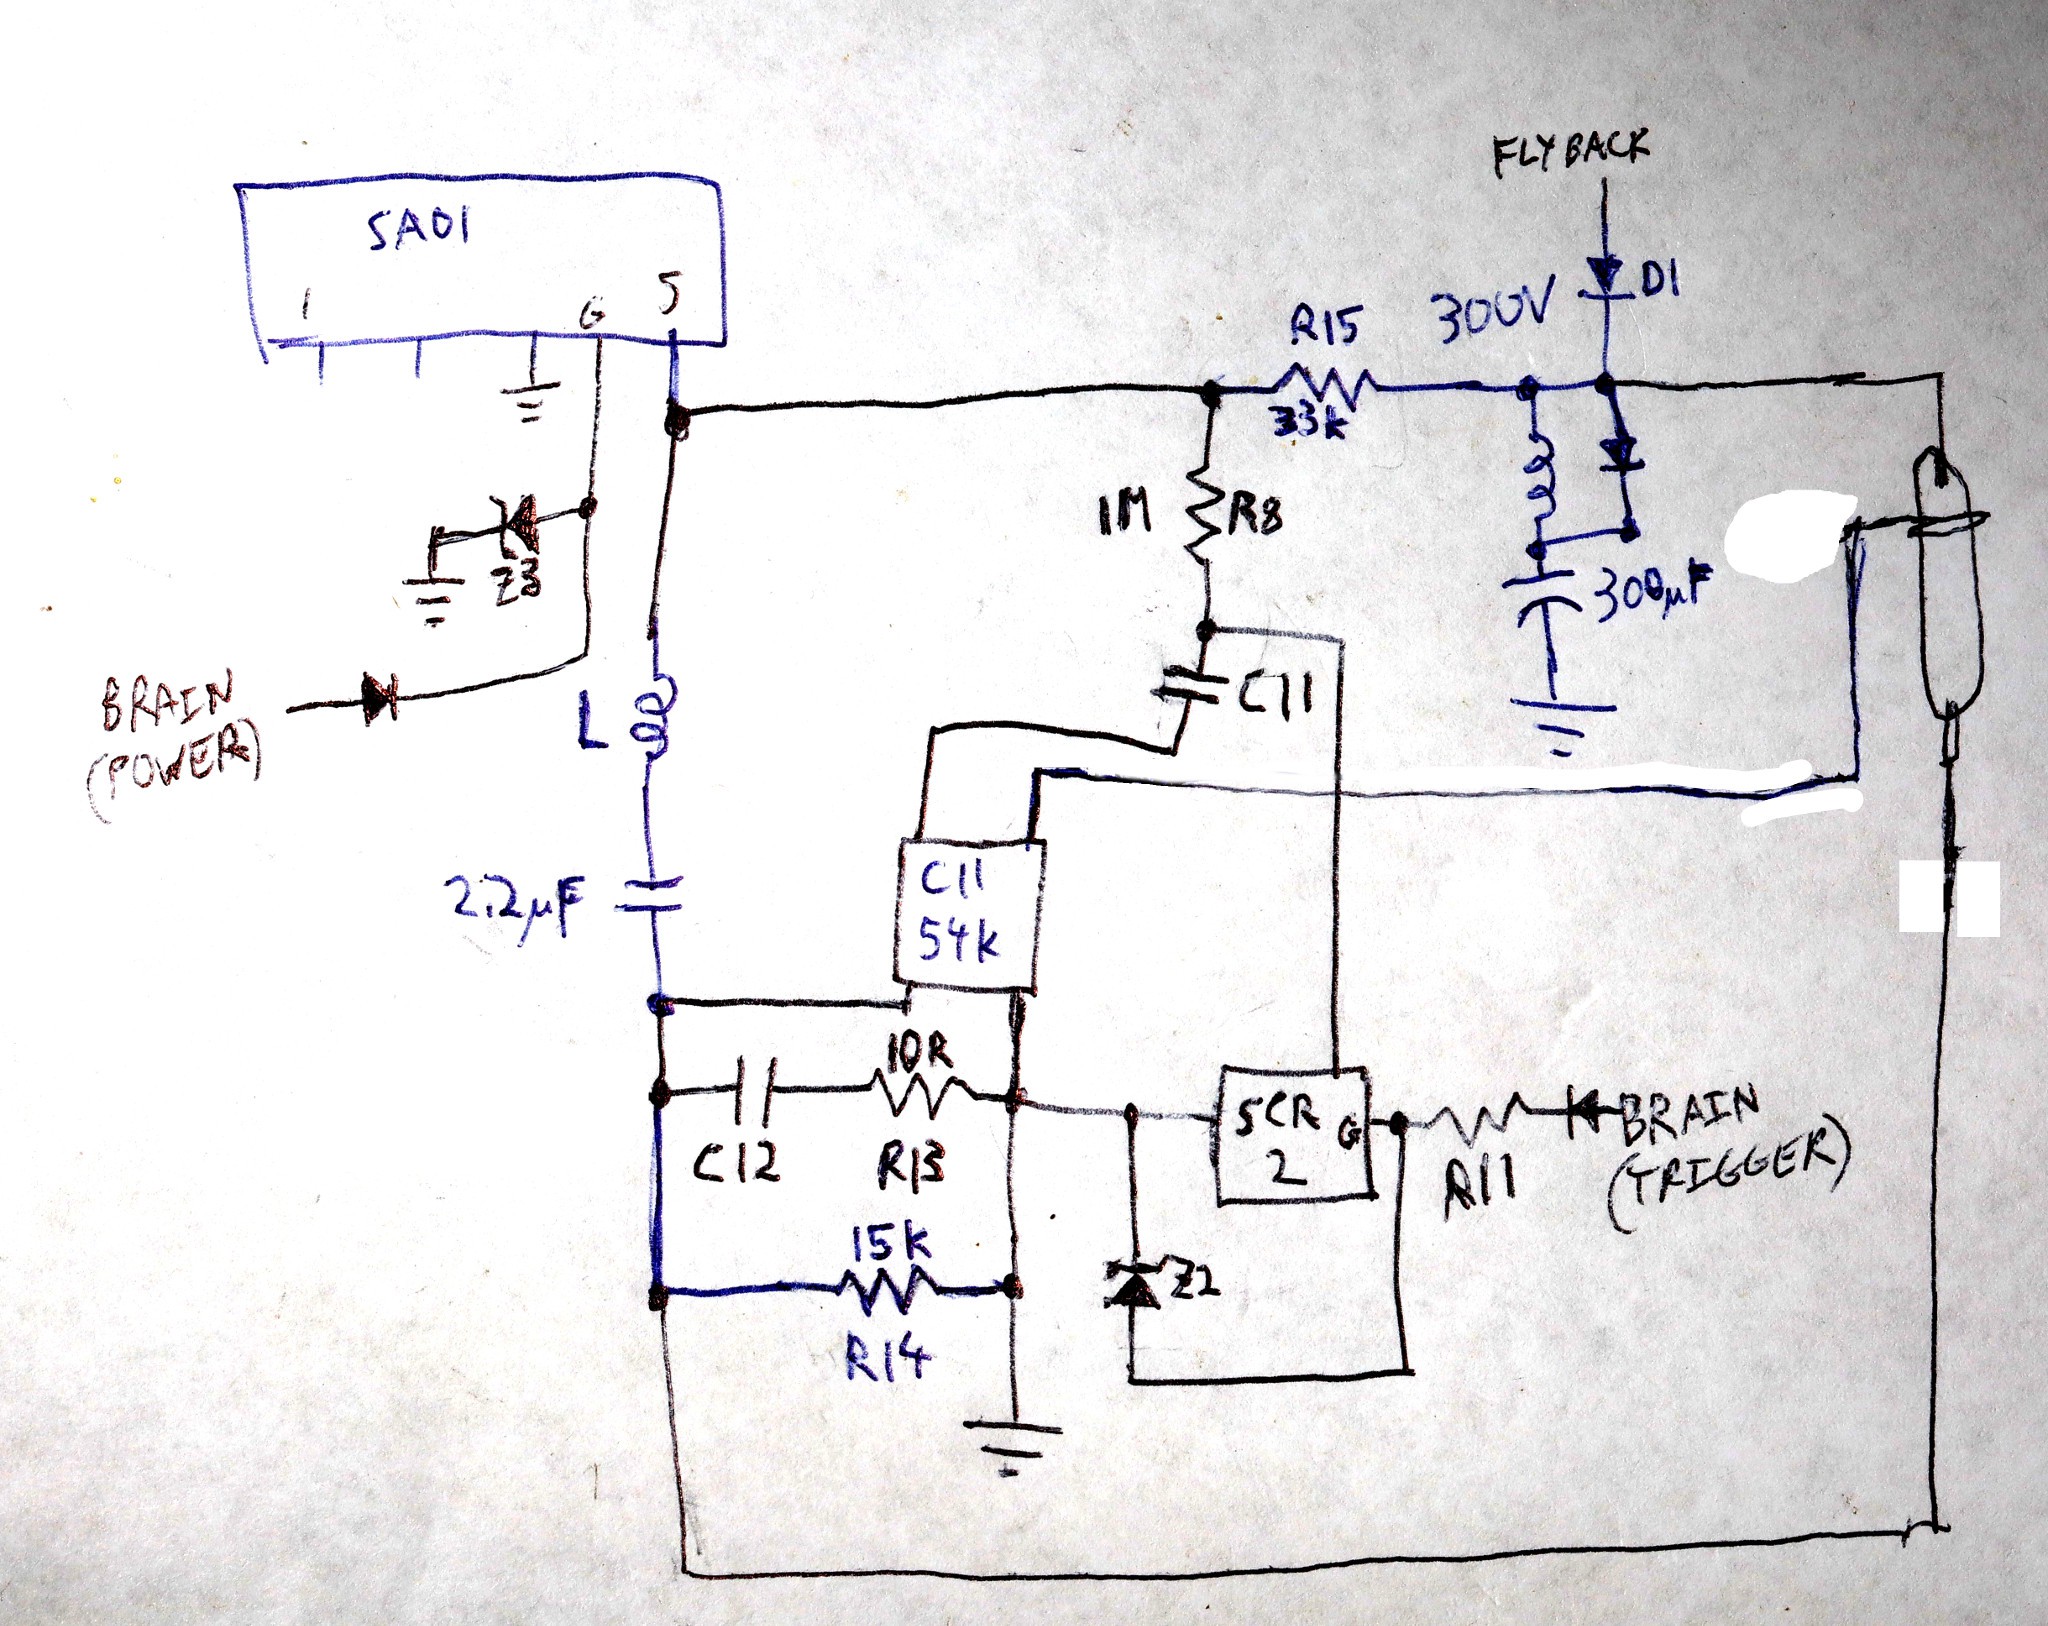 FLYBACK
SA01
1
G
5
300V
D1
R15
33k
1M
R8
Z3
300µF
BRAIN
(POWER)
L
C11
2.2µF
C11
54k
10R
C12
R13
SCR
2
G
R11
BRAIN
(TRIGGER)
15k
R14
Z2